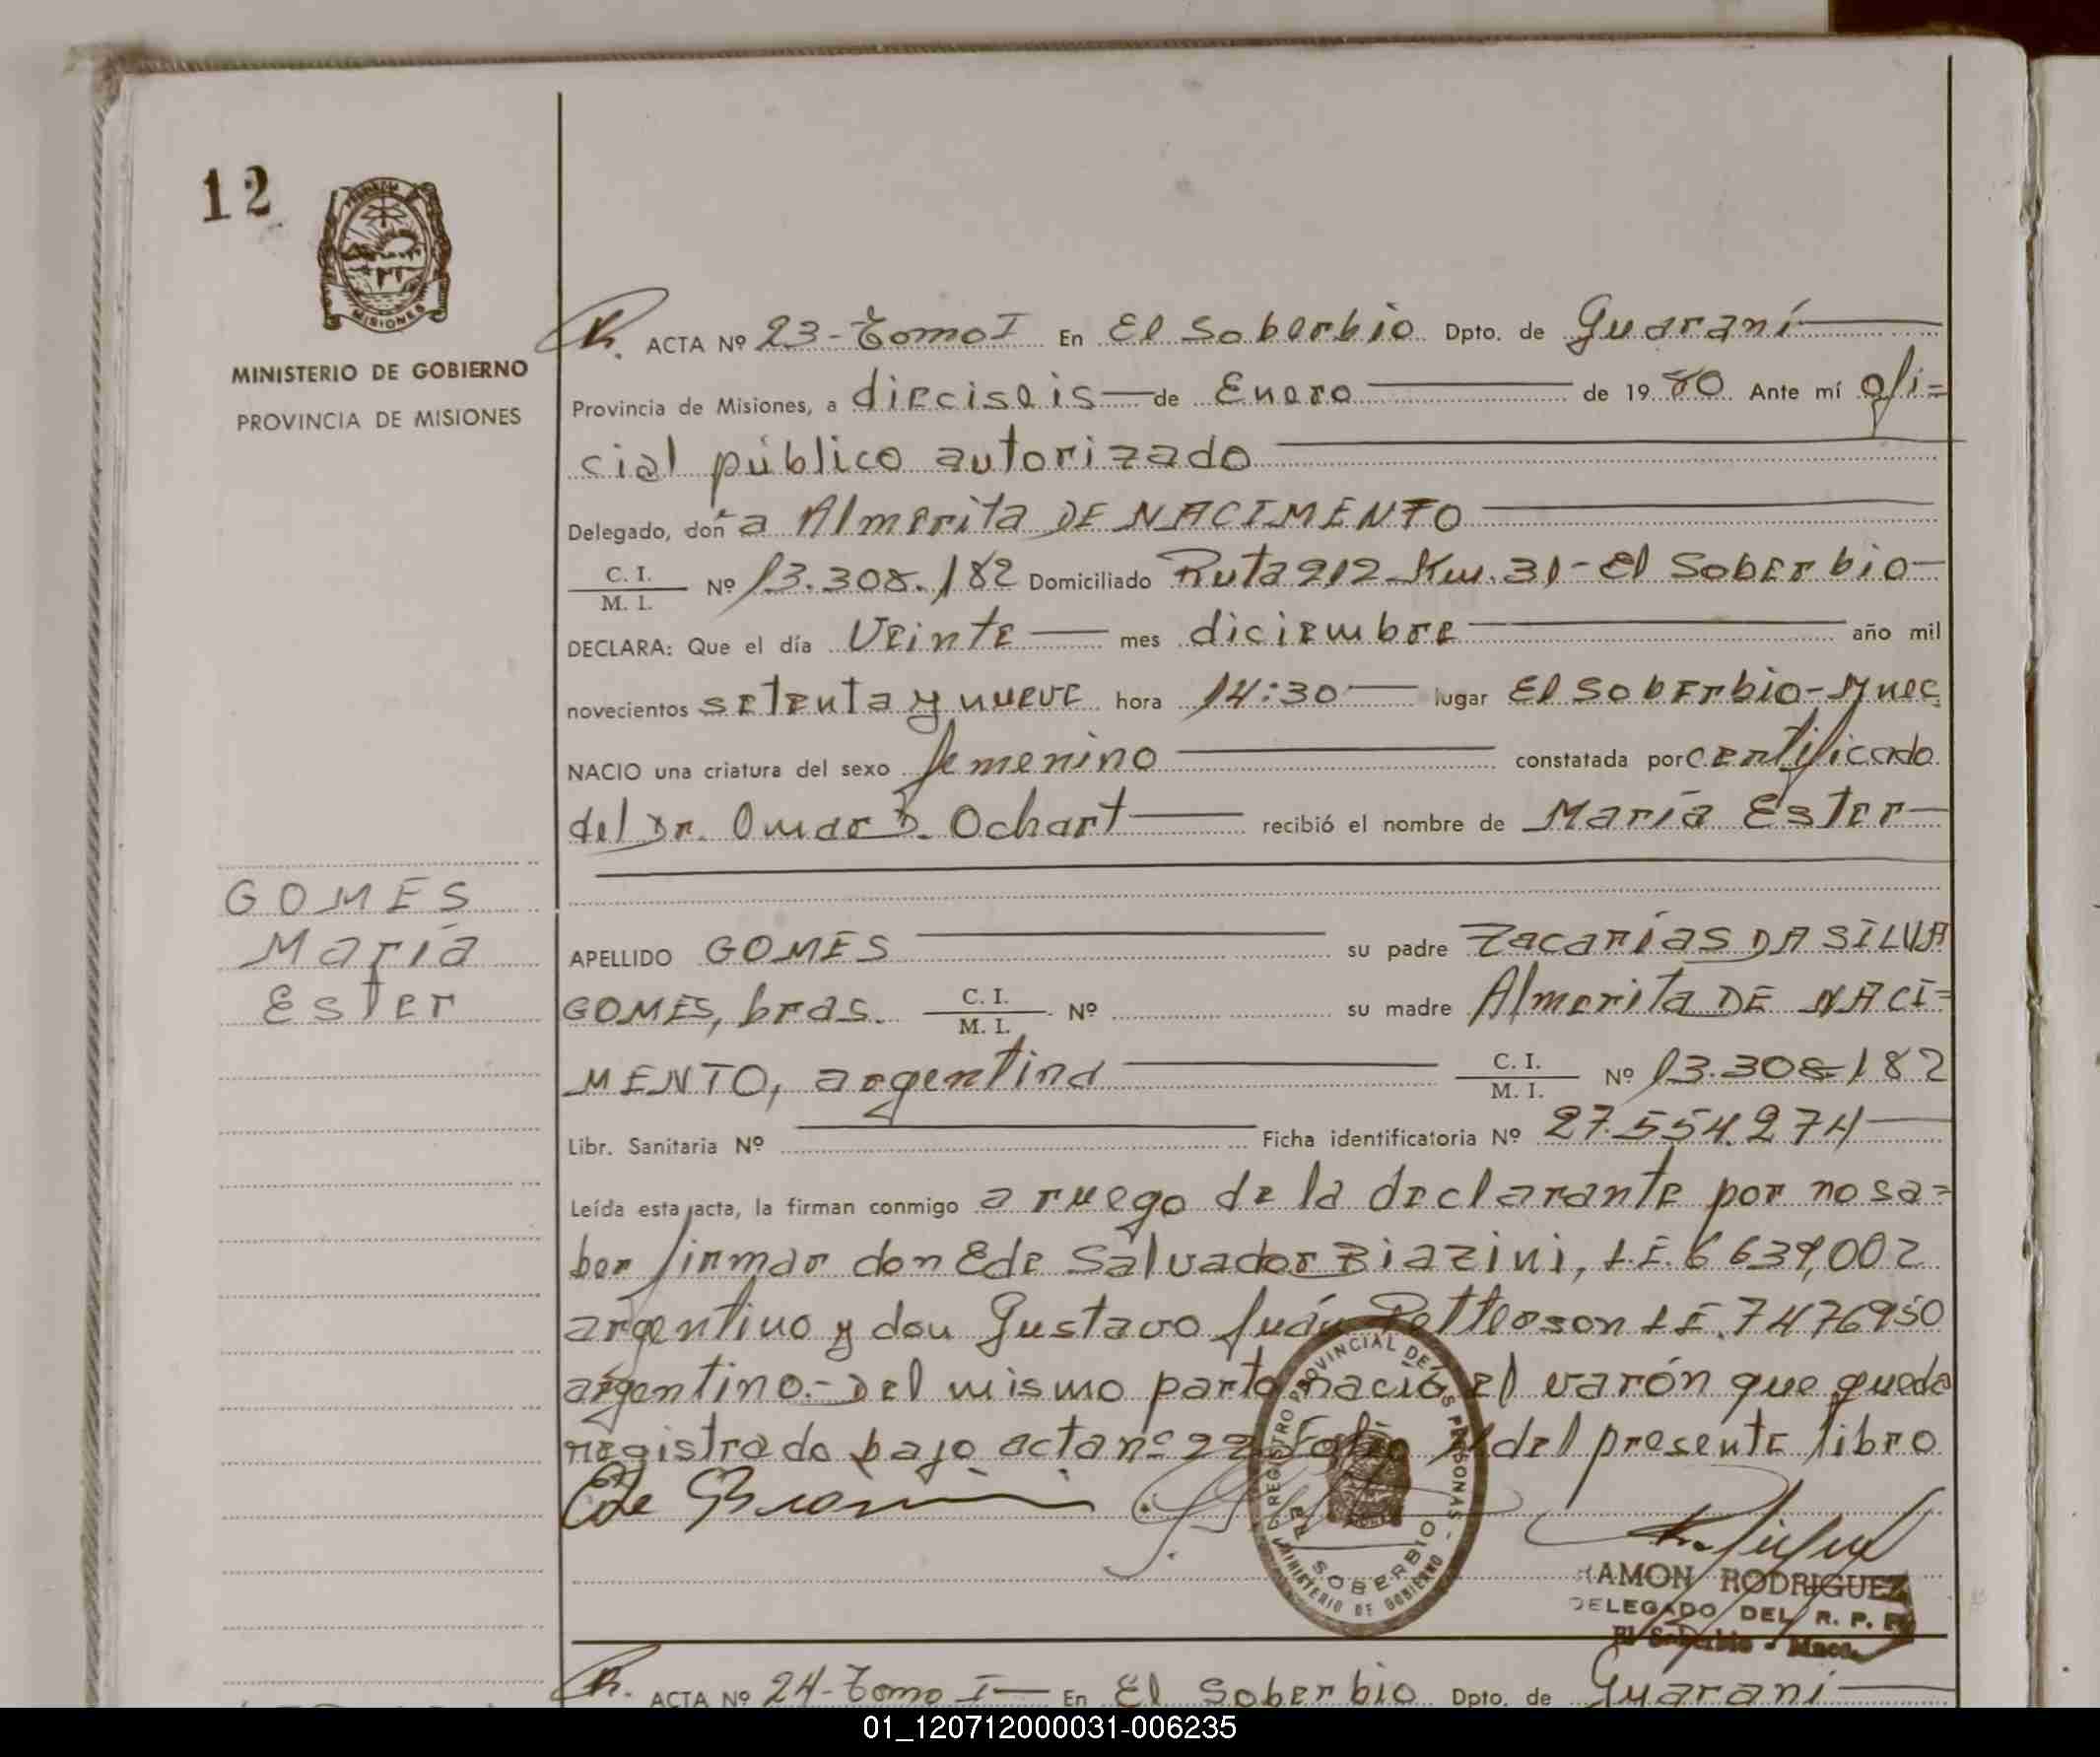 12
MISIONES
MINISTERIO DE GOBIERNO
PROVINCIA DE MISIONES
ACTA Nº 23-Tomo I En El Soberbio Dpto. de Guaraní
Provincia de Misiones, a dieciseis de Enero de 1980 Ante mí ofi=
cial público autorizado
Delegado, doña Almerita DE NACIMENTO
C. I.
M. I. Nº 13.308.182 Domiciliado Ruta 212 Km. 31-El Soberbio
DECLARA: Que el día Veinte mes diciembre año mil
novecientos setenta y nueve hora 14:30 lugar El Soberbio-Mnes
NACIO una criatura del sexo femenino constatada por certificado
del Dr. Omar D. Ochart recibió el nombre de María Ester
GOMES
María
Ester
APELLIDO GOMES su padre Zacarías DA SILVA
GOMES, bras. C. I.
M. I. Nº su madre Almerita DE NACI=
MENTO, argentina C. I.
M. I. Nº 13.308.182
Libr. Sanitaria Nº Ficha identificatoria Nº 27.554.274
Leída esta acta, la firman conmigo a ruego de la declarante por no sa=
ber firmar don Ede Salvador Biazini, L.E. 6639,002
argentino y don Gustavo Juán Petterson L E. 7476950
argentino.- Del mismo parto nació el varón que queda
registrado bajo acta nº 22 Folio del presente libro
REGISTRO PROVINCIAL DE LAS PERSONAS
EL SOBERBIO
MINISTERIO DE GOBIERNO
RAMON RODRIGUEZ
DELEGADO DEL R. P. P.
El Soberbio - Mnes.
ACTA Nº 24-Tomo I En El Soberbio Dpto. de Guaraní
01_120712000031-006235